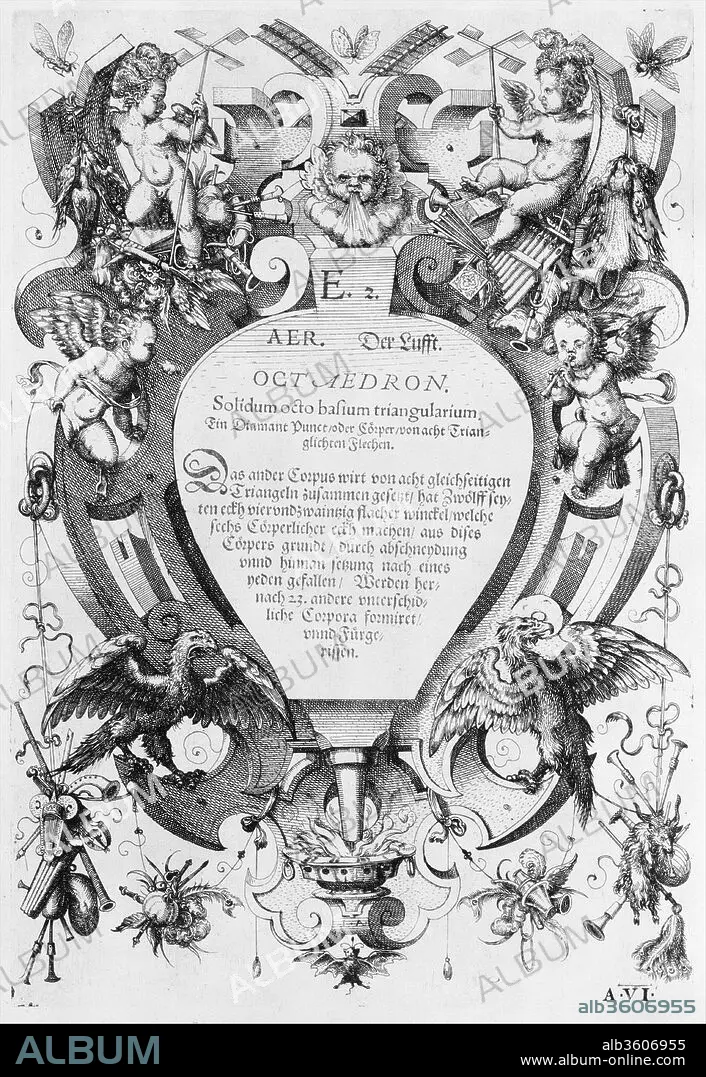 E. 2.
AER. Der Lufft.
OCTAEDRON.
Solidum octo basium triangularium,
Ein Diamant Punct/oder Cörper/von acht Trian-
glichem Flechen.
Das ander Corpus wirt von acht gleichseitigen
Triangeln zusammen gesetzt/ hat Zwölff sey-
ten eckh vierundzwaintzig flacher winckel/welche
sechs Cörperlicher eckh machen/ aus dises
Cörpers grundt/ durch abschneydung
vnnd hinnon setzung nach eines
yeden gefallen/ Werden her-
nach 23. andere vnterschid-
liche Corpora formiret/
vnnd Fürge-
rissen.
A·VI·
alb3606955
ALBUM
alb3606955
www.album-online.com